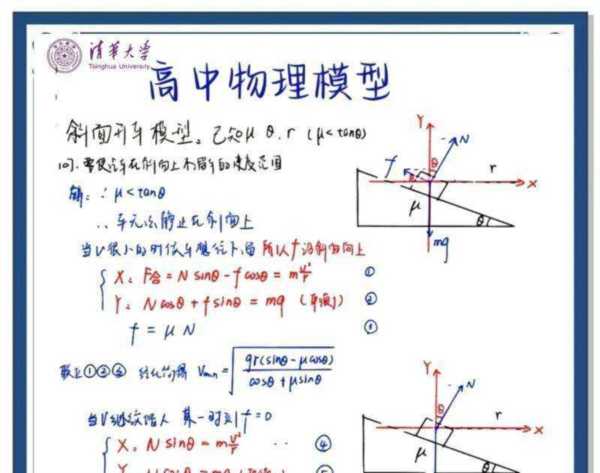 清华大学
Tsinghua University
高中物理模型
斜面开车模型。已知μ θ.r (μ<tanθ)
问:要使汽车在斜面上不溜车的速度范围
解:∵μ<tanθ
∴车无法静止在斜面上
当V很小的时候车想往下溜 所以f沿斜面向上
X: F合 = N sinθ - f cosθ = m v²/r ①
Y: N cosθ + f sinθ = mg (平衡) ②
f = μN ③
联立①②③ 得 Vmin = √(gr(sinθ - μcosθ)/(cosθ + μsinθ))
当V继续增大 某一时刻 f = 0
X: N sinθ = m v²/r ④
Y
⑤
Y
N
f
θ
r
X
μ
θ
mg
Y
N
θ
r
X
μ
θ